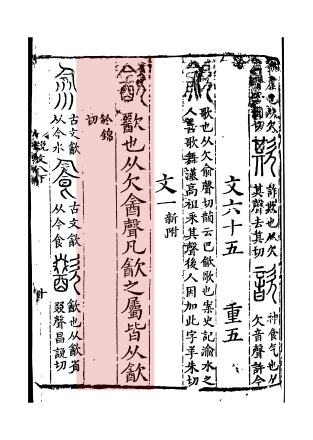 虛也从欠
切
欺
詐欺也从欠
其聲去其切
歆
神食气也从
欠音聲許今
文六十五 重五
歈
歌也从欠俞聲切韻云巴歈歌也案史記渝水之
人善歌舞漢高祖采其聲後人因加此字羊朱切
文一 新附
㱃
㱃也从欠酓聲凡㱃之屬皆从㱃
於錦
切
古文㱃
从今水
古文㱃
从今食
歠
㱃也从㱃省
叕聲昌說切
説文八下
十